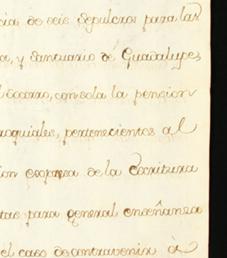 cia de seis sepulcros para las
a, y Santuario de Guadalupe,
l Socorro, con sola la pension
roquiales, pertenecientes al
un expresa de la Escritura
tas para general enseñanza
el caso de contravenir à